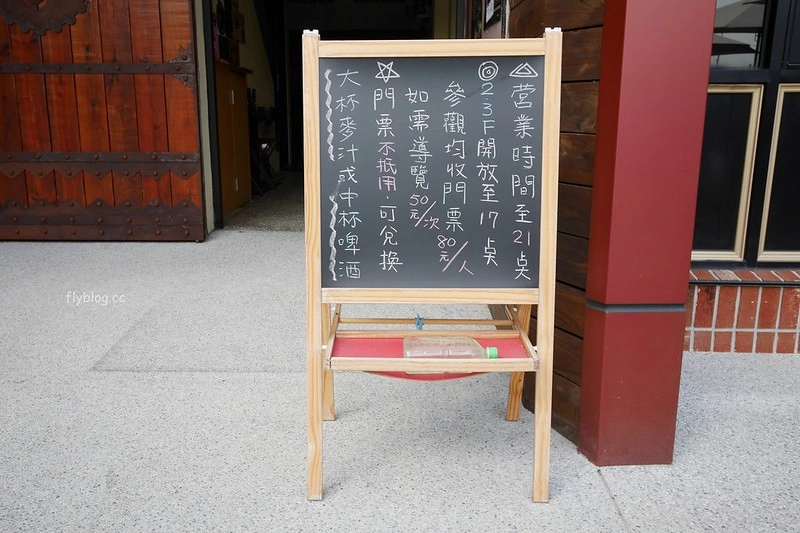 營業時間至21點
2.3F開放至17點
參觀均收門票80元/人
如需導覽50元/次
門票不抵用.可兌換
大杯麥汁或中杯啤酒
flyblog.cc